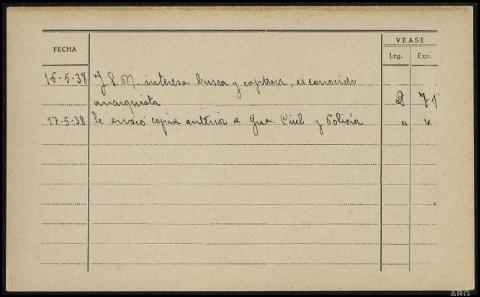 VEASE
FECHA Leg. Exp.
16-5-38 J. S. M. interesa busca y captura, es conocido
anarquista 2 71
17-5-38 Se envió copia anterior a Gua. Civil y Policía " "
ARG